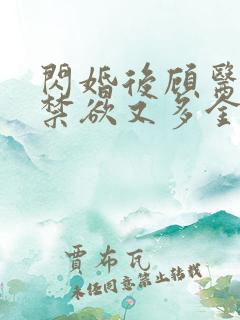 閃婚後顾醫
禁欲又多金
賈布瓦
未任同意禁止转载